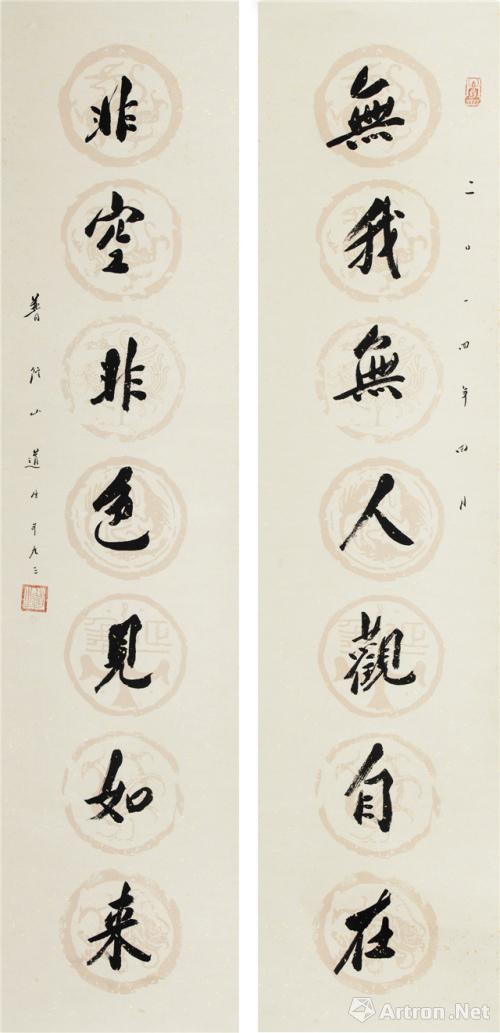 二〇一四年四月
無我無人觀自在
非空非色見如来
普陀山道生年九三
Artron.Net